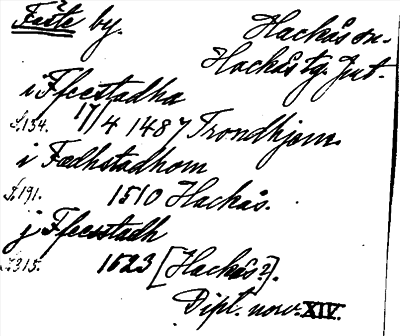 Fäste by.
Hackås sn.
Hackås tg. Jmt.
i Ffeestadha
S.134. 17/4 1487 Trondhjem.
i Fædhstadhom
S.191. 1510 Hackås.
j Ffeestadh
S.315. 1523 [Hackås?].
Dipl. norv. XIV.